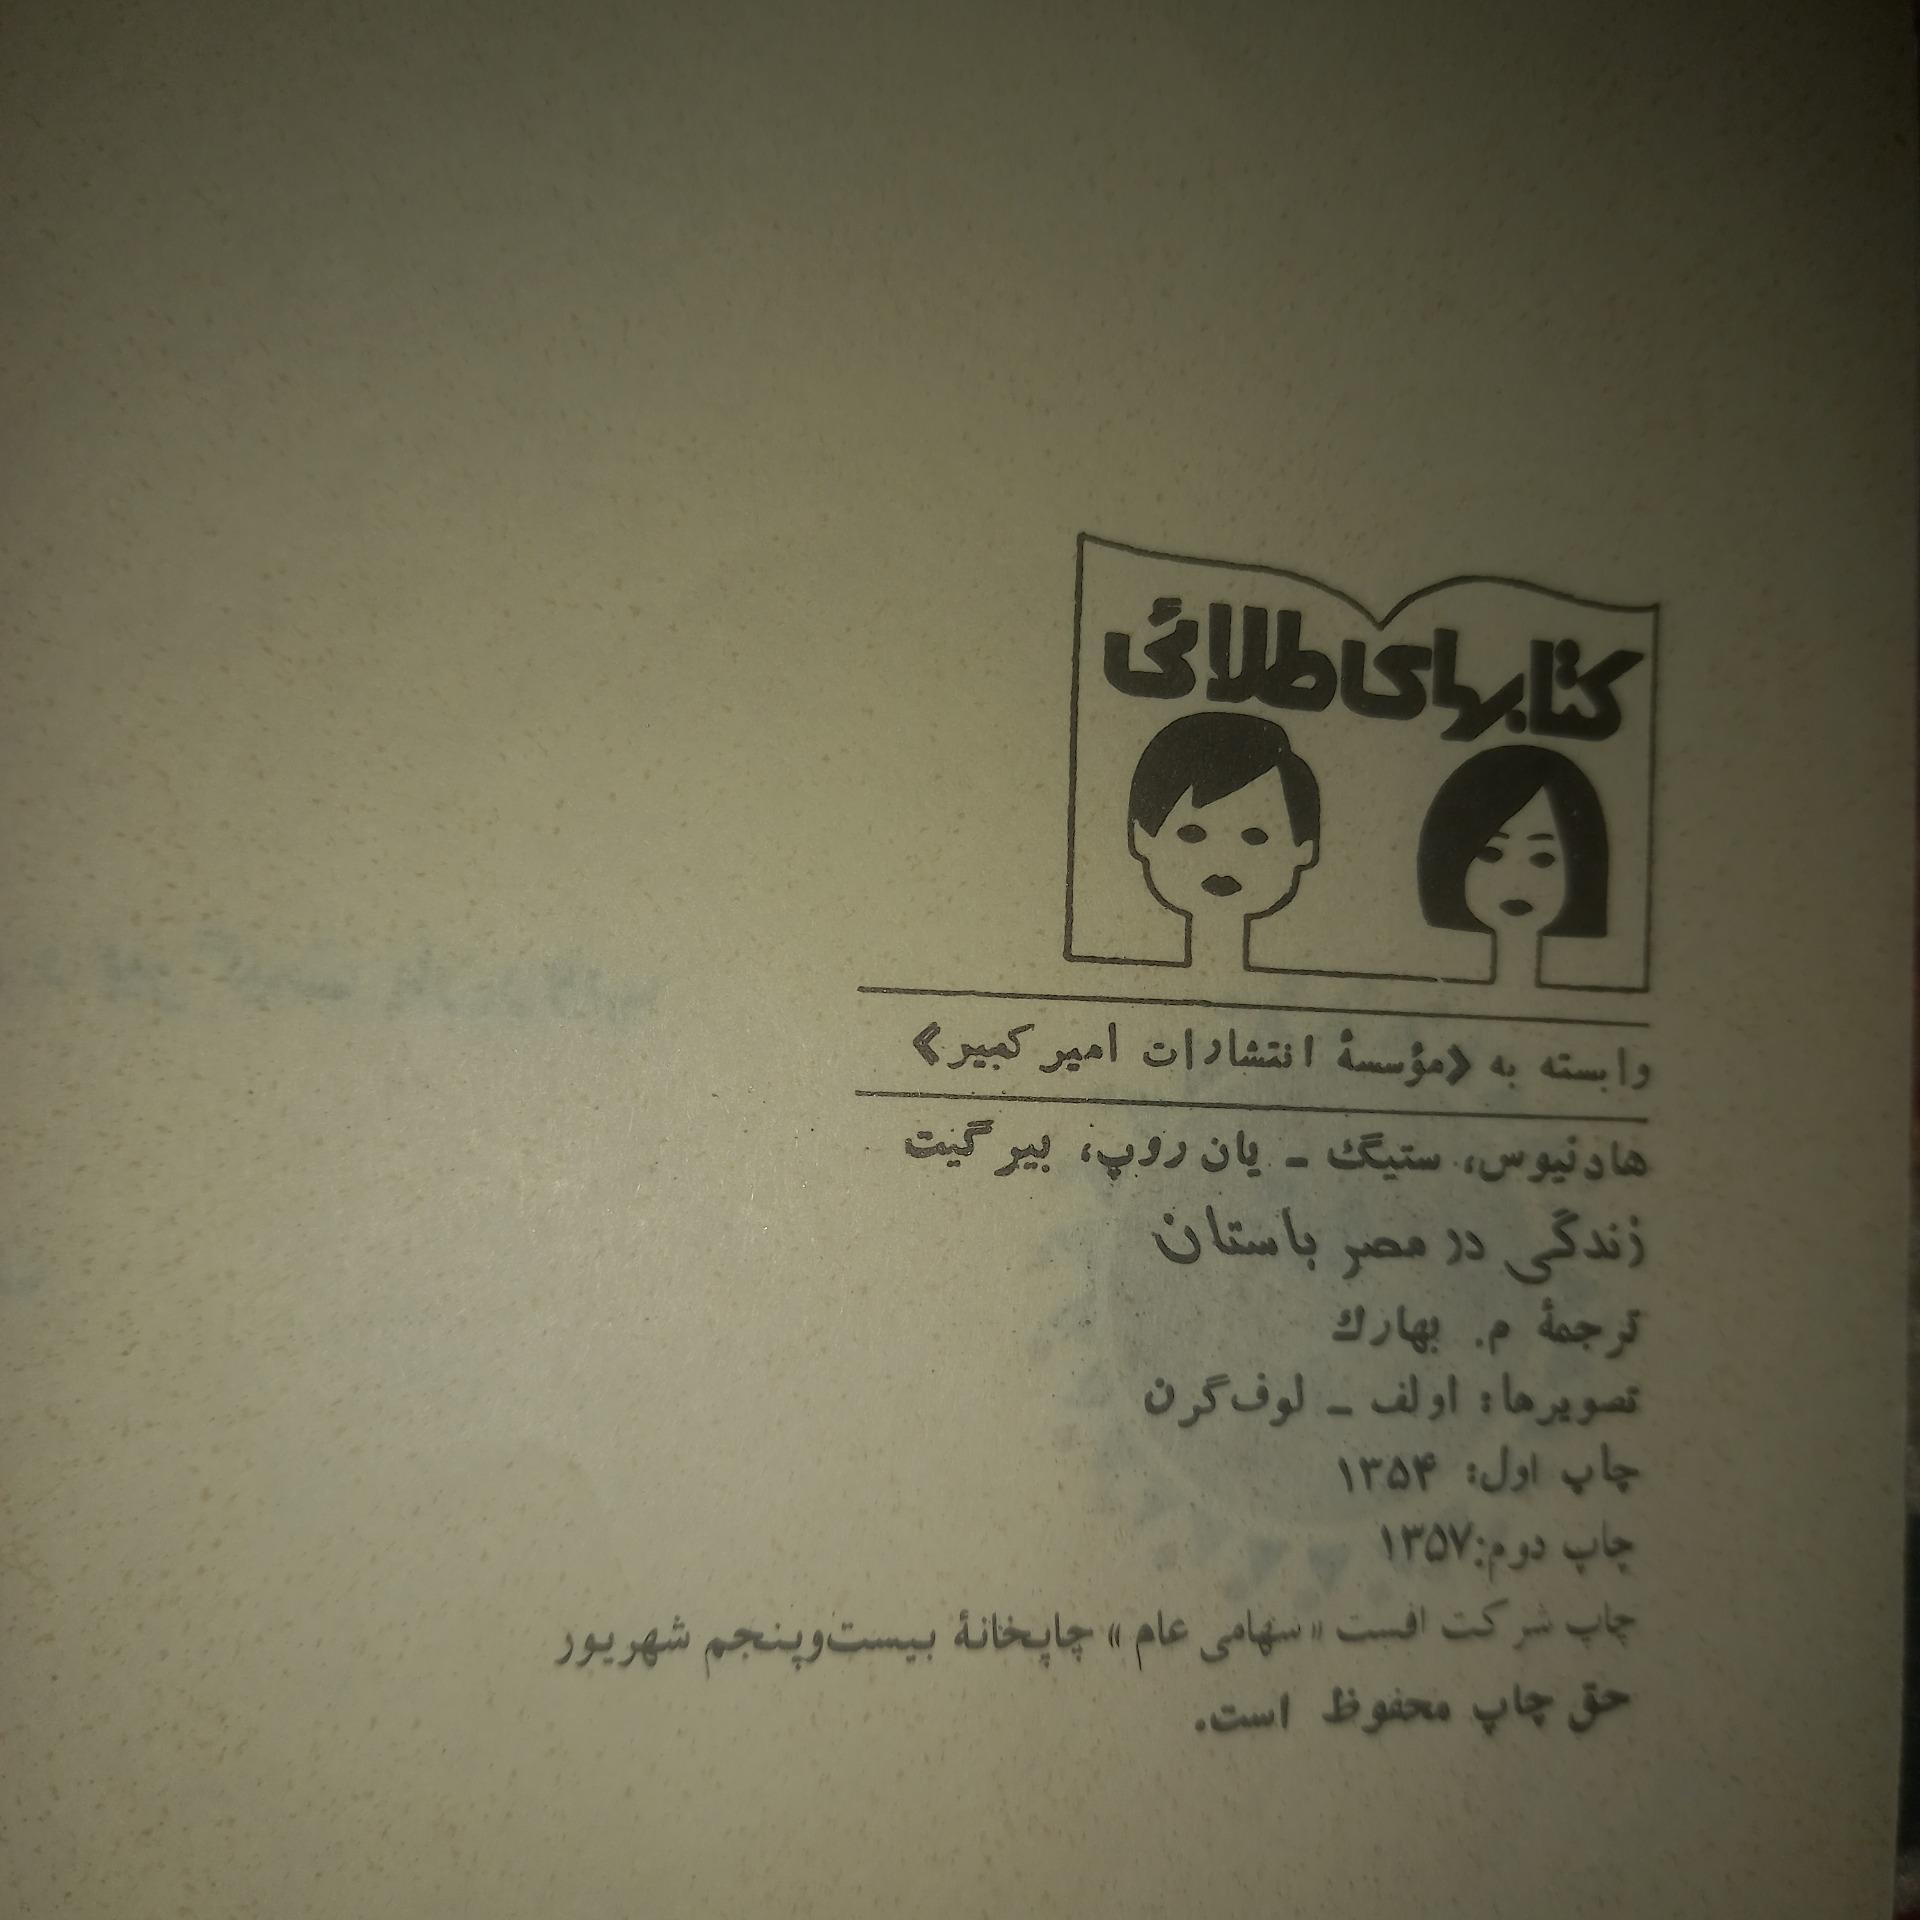 کتابهای طلائی
وابسته به «مؤسسهٔ انتشارات امیرکبیر»
هادنیوس، ستیگ - یان روپ، بیرگیت
زندگی در مصر باستان
ترجمهٔ م. بهارك
تصویرها: اولف - لوف‌گرن
چاپ اول: ۱۳۵۴
چاپ دوم: ۱۳۵۷
چاپ شرکت افست «سهامی عام» چاپخانهٔ بیست‌وپنجم شهریور
حق چاپ محفوظ است.